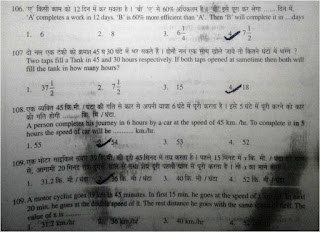 106. 'ए' किसी काम को 12 दिन में कर सकता है। 'बी' 'ए' से 60% अधिक है इसे पूरा करेगा दिन में।
'A' completes a work in 12 days. 'B' is 60% more efficient than 'A'. Then 'B' will complete it in ....days
1. 6 2. 8 3. 6 1/4 4. 7 1/2
107. दो नल एक टंकी को 45 व 30 घंटे में भर सकते हैं। दोनों नल एक साथ खोले जाये तो कितने घंटे में भरेंगे ?
Two taps fill a Tank in 45 and 30 hours respectively. If both taps opened at sometime then both will
fill the tank in how many hours?
1. 37 1/2 2. 7 1/2 3. 15 4. 18
108. एक व्यक्ति 45 कि.मी. / घंटा की गति से कार से अपनी यात्रा 6 घंटे में पूरी करता है। इसे 5 घंटे में पूरी करने को कार
की गति होगी कि. मि / घंटा
A person completes his journey in 6 hours by a car at the speed of 45 km. /hr. To complete it in 5
hours the speed of car will be .......... km./hr.
1. 55 2. 54 3. 53 4. 52
109. एक मोटर साइकिल सवार 39 कि.मी. की दूरी 45 मिनट में तय करता है। पहले 15 मिनट में x कि. मी. / घंटा
से, अगामी 20 मिनट
1. 31.2 कि. मी / घंटा 2. 36 कि. मी / घंटा 3. 40 कि. मी / घंटा 4. 52 कि. मी / घंटा
A motor cyclist goes 39 km in 45 minutes. In first 15 min. he goes at the speed of
20 min. he goes at the double speed of it. The rest distance he goes with the same speed as first. The
value of x is
1. 31.2 km./hr 2. 36 km./hr 3. 40 km./hr